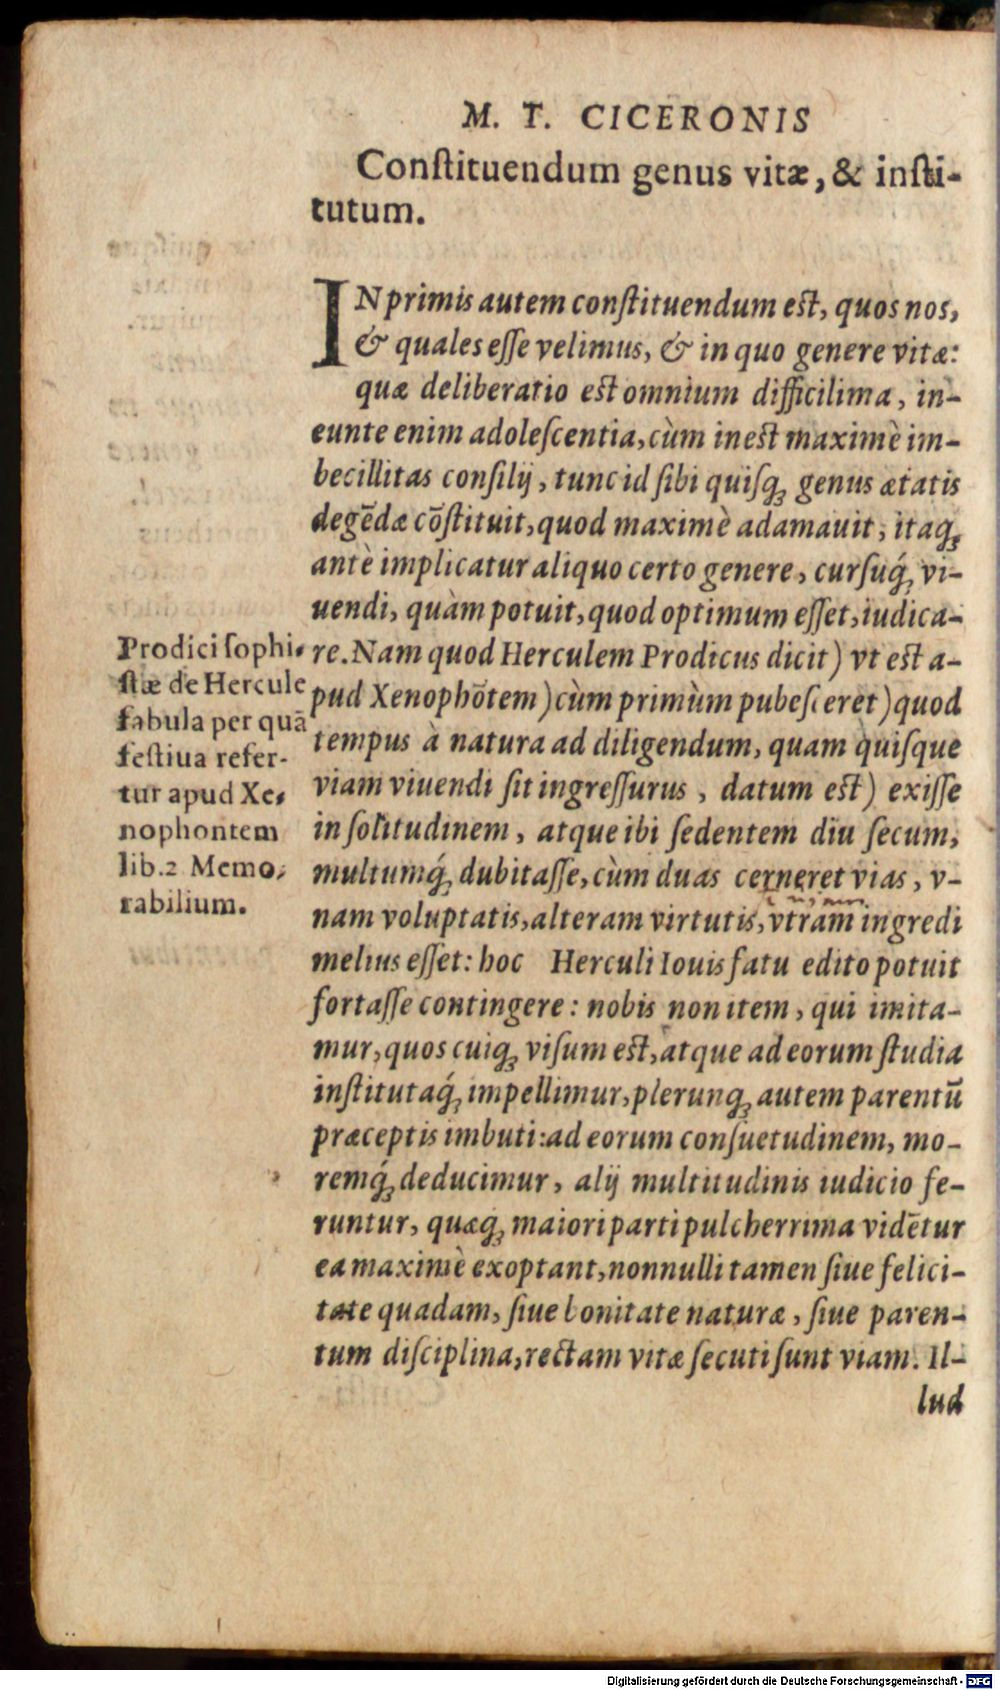 M. T. CICERONIS
Conſtituendum genus vitæ, & inſti-
tutum.
INprimis autem conſtituendum est, quos nos,
& quales eſſe velimus, & in quo genere vitæ:
quæ deliberatio est omnium difficilima, in-
eunte enim adoleſcentia, cùm inest maximè im-
becillitas conſilij, tunc id ſibi quiſq́; genus ætatis
degēdæ cōſtituit, quod maximè adamauit, itaq́;
antè implicatur aliquo certo genere, curſuq́; vi-
uendi, quàm potuit, quod optimum eſſet, iudica-
re. Nam quod Herculem Prodicus dicit) vt est a-
pud Xenophōtem) cùm primùm pubeſceret) quod
tempus à natura ad diligendum, quam quiſque
viam viuendi ſit ingreſſurus, datum est) exiſſe
in ſolitudinem, atque ibi ſedentem diu ſecum,
multumq́; dubitaſſe, cùm duas cerneret vias, v-
nam voluptatis, alteram virtutis, vtram ingredi
melius eſſet: hoc Herculi Iouis ſatu edito potuit
fortaſſe contingere: nobis non item, qui imita-
mur, quos cuiq; viſum est, atque ad eorum ſtudia
inſtitutaq́; impellimur, plerunq; autem parentū
præceptis imbuti: ad eorum conſuetudinem, mo-
remq́; deducimur, alij multitudinis iudicio fe-
runtur, quæq; maiori parti pulcherrima vidētur
ea maximè exoptant, nonnulli tamen ſiue felici-
tate quadam, ſiue bonitate naturæ, ſiue paren-
tum diſciplina, rectam vitæ ſecuti ſunt viam. Il-
lud
Prodici ſophi-
ſtæ de Hercule
fabula per quā
feſtiua refer-
tur apud Xe-
nophontem
lib.2 Memo-
rabilium.
Digitalisierung gefördert durch die Deutsche Forschungsgemeinschaft - DFG